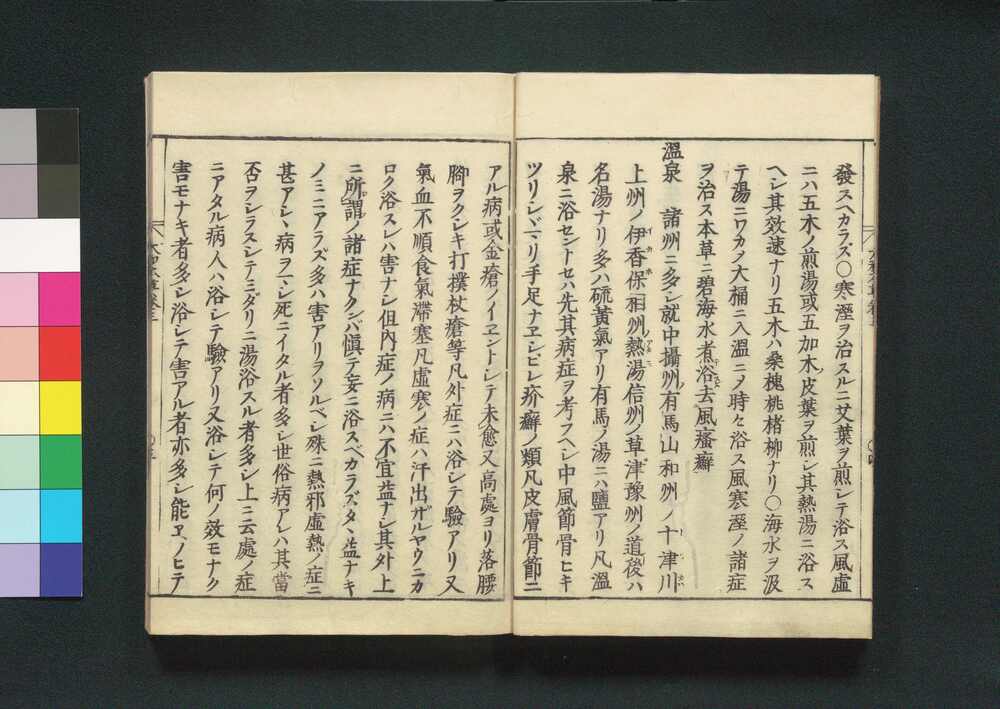 發スヘカラズ〇寒溼ヲ治スルニ艾葉ヲ煎シテ浴ス風虛
ニハ五木ノ煎湯或五加木皮葉ヲ煎シ其熱湯ニ浴ス
ヘシ其效速ナリ五木ハ桑槐桃楮柳ナリ〇海水ヲ汲
テ湯ニワカメ大桶ニ入溫ニメ時々浴ス風寒溼ノ諸症
ヲ治ス本草ニ碧海水煮浴去風瘙癬
溫泉 諸州ニ多シ就中攝州有馬山和州ノ十津川
上州ノ伊香保相州熱湯信州ノ草津豫州ノ道後ハ
名湯ナリ多ハ硫黃氣アリ有馬ノ湯ニハ鹽アリ凡溫
泉ニ浴セントセハ先其病症ヲ考フヘシ中風節骨ヒキ
ツリシヾマリ手足ナヱシビレ疥癬ノ類凡皮膚骨節ニ
アル病或金瘡ノイヱントシテ未愈又高處ヨリ落腰
腳ヲクシキ打撲杖瘡等凡外症ニハ浴シテ驗アリ又
氣血不順食氣滯塞凡虛寒ノ症ハ汗出ザルヤウニカ
ロク浴スレハ害ナシ但內症ノ病ニハ不宜益ナシ其外上
ニ所謂ノ諸症ナクンバ愼テ妄ニ浴スベカラズタヾ益ナキ
ノミニアラズ多ハ害アリヲソルベシ殊ニ熱邪虛熱ノ症ニ
甚アシヽ病ヲマシ死ニイタル者多シ世俗病アレハ其當
否ヲシラスシテミダリニ湯浴スル者多シ上ニ云處ノ症
ニアタル病人ハ浴シテ驗アリ又浴シテ何ノ效モナク
害モナキ者多シ浴シテ害アル者亦多シ能ヱノヒテ